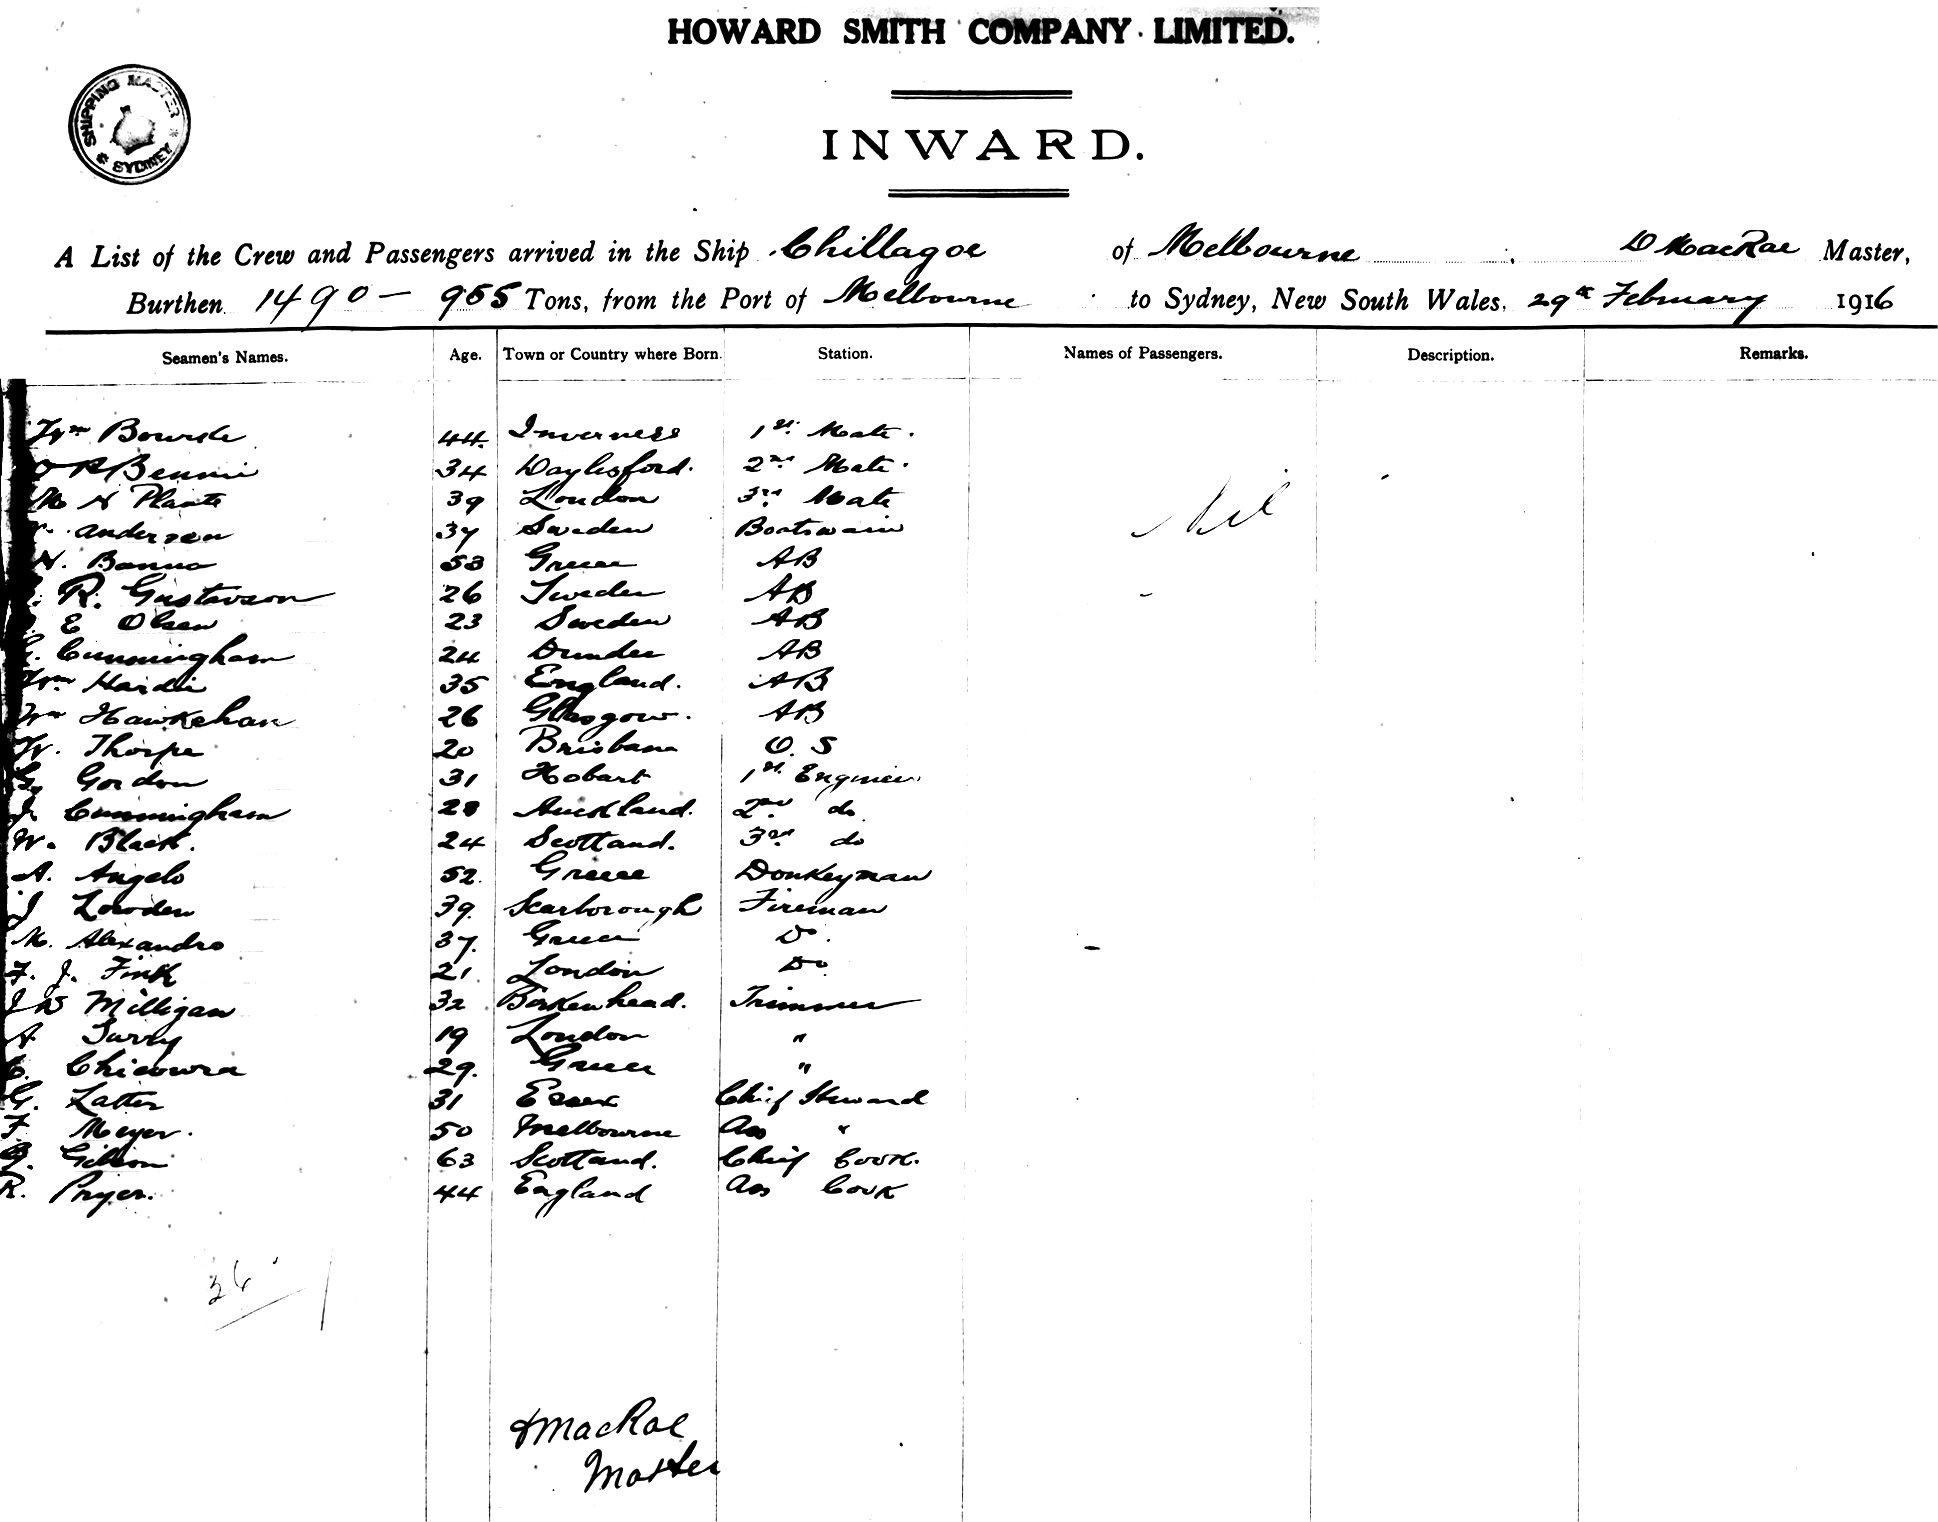 HOWARD SMITH COMPANY LIMITED.
SHIPPING MASTER * SYDNEY *
INWARD.
A List of the Crew and Passengers arrived in the Ship Chillagoe of Melbourne ; D MacRae Master,
Burthen 1490 - 955 Tons, from the Port of Melbourne to Sydney, New South Wales, 29th February 1916
Seamen's Names. Age. Town or Country where Born. Station. Names of Passengers. Description. Remarks.
Wm 44. Inverness 1st Mate.
Bennie 34 Daylesford. 2nd Mate.
M N Plante 39 London 3rd Mate
Anderson 37 Sweden Boatswain
Nil
N. Banno 53 Greece AB
R. Gustavson 26 Sweden AB
E Olsen 23 Sweden AB
Cunningham 24 Dundee AB
Wm Hardie 35 England. AB
Wm Hawkehan 26 Glasgow. AB
W. Thorpe 20 Brisbane O. S
G. Gordon 31 Hobart 1st Engineer
J. Cunningham 28 Auckland. 2nd do
W. Black. 24 Scotland. 3rd do
A. Angelo 52. Greece Donkeyman
J Lowden 39. Scarborough Fireman
M. Alexandro 37. Greece Do.
F. J. Fink 21 London Do
J W Milligan 32 Birkenhead. Trimmer
A Survy 19 London "
C. Chicowra 29. Greece "
G. Latter 31 Essex Chief Steward
F Meyer. 50 Melbourne Ass "
G. Gibson 63 Scotland. Chief Cook.
R. Pryer. 44 England Ass Cook
26
D MacRae
Master